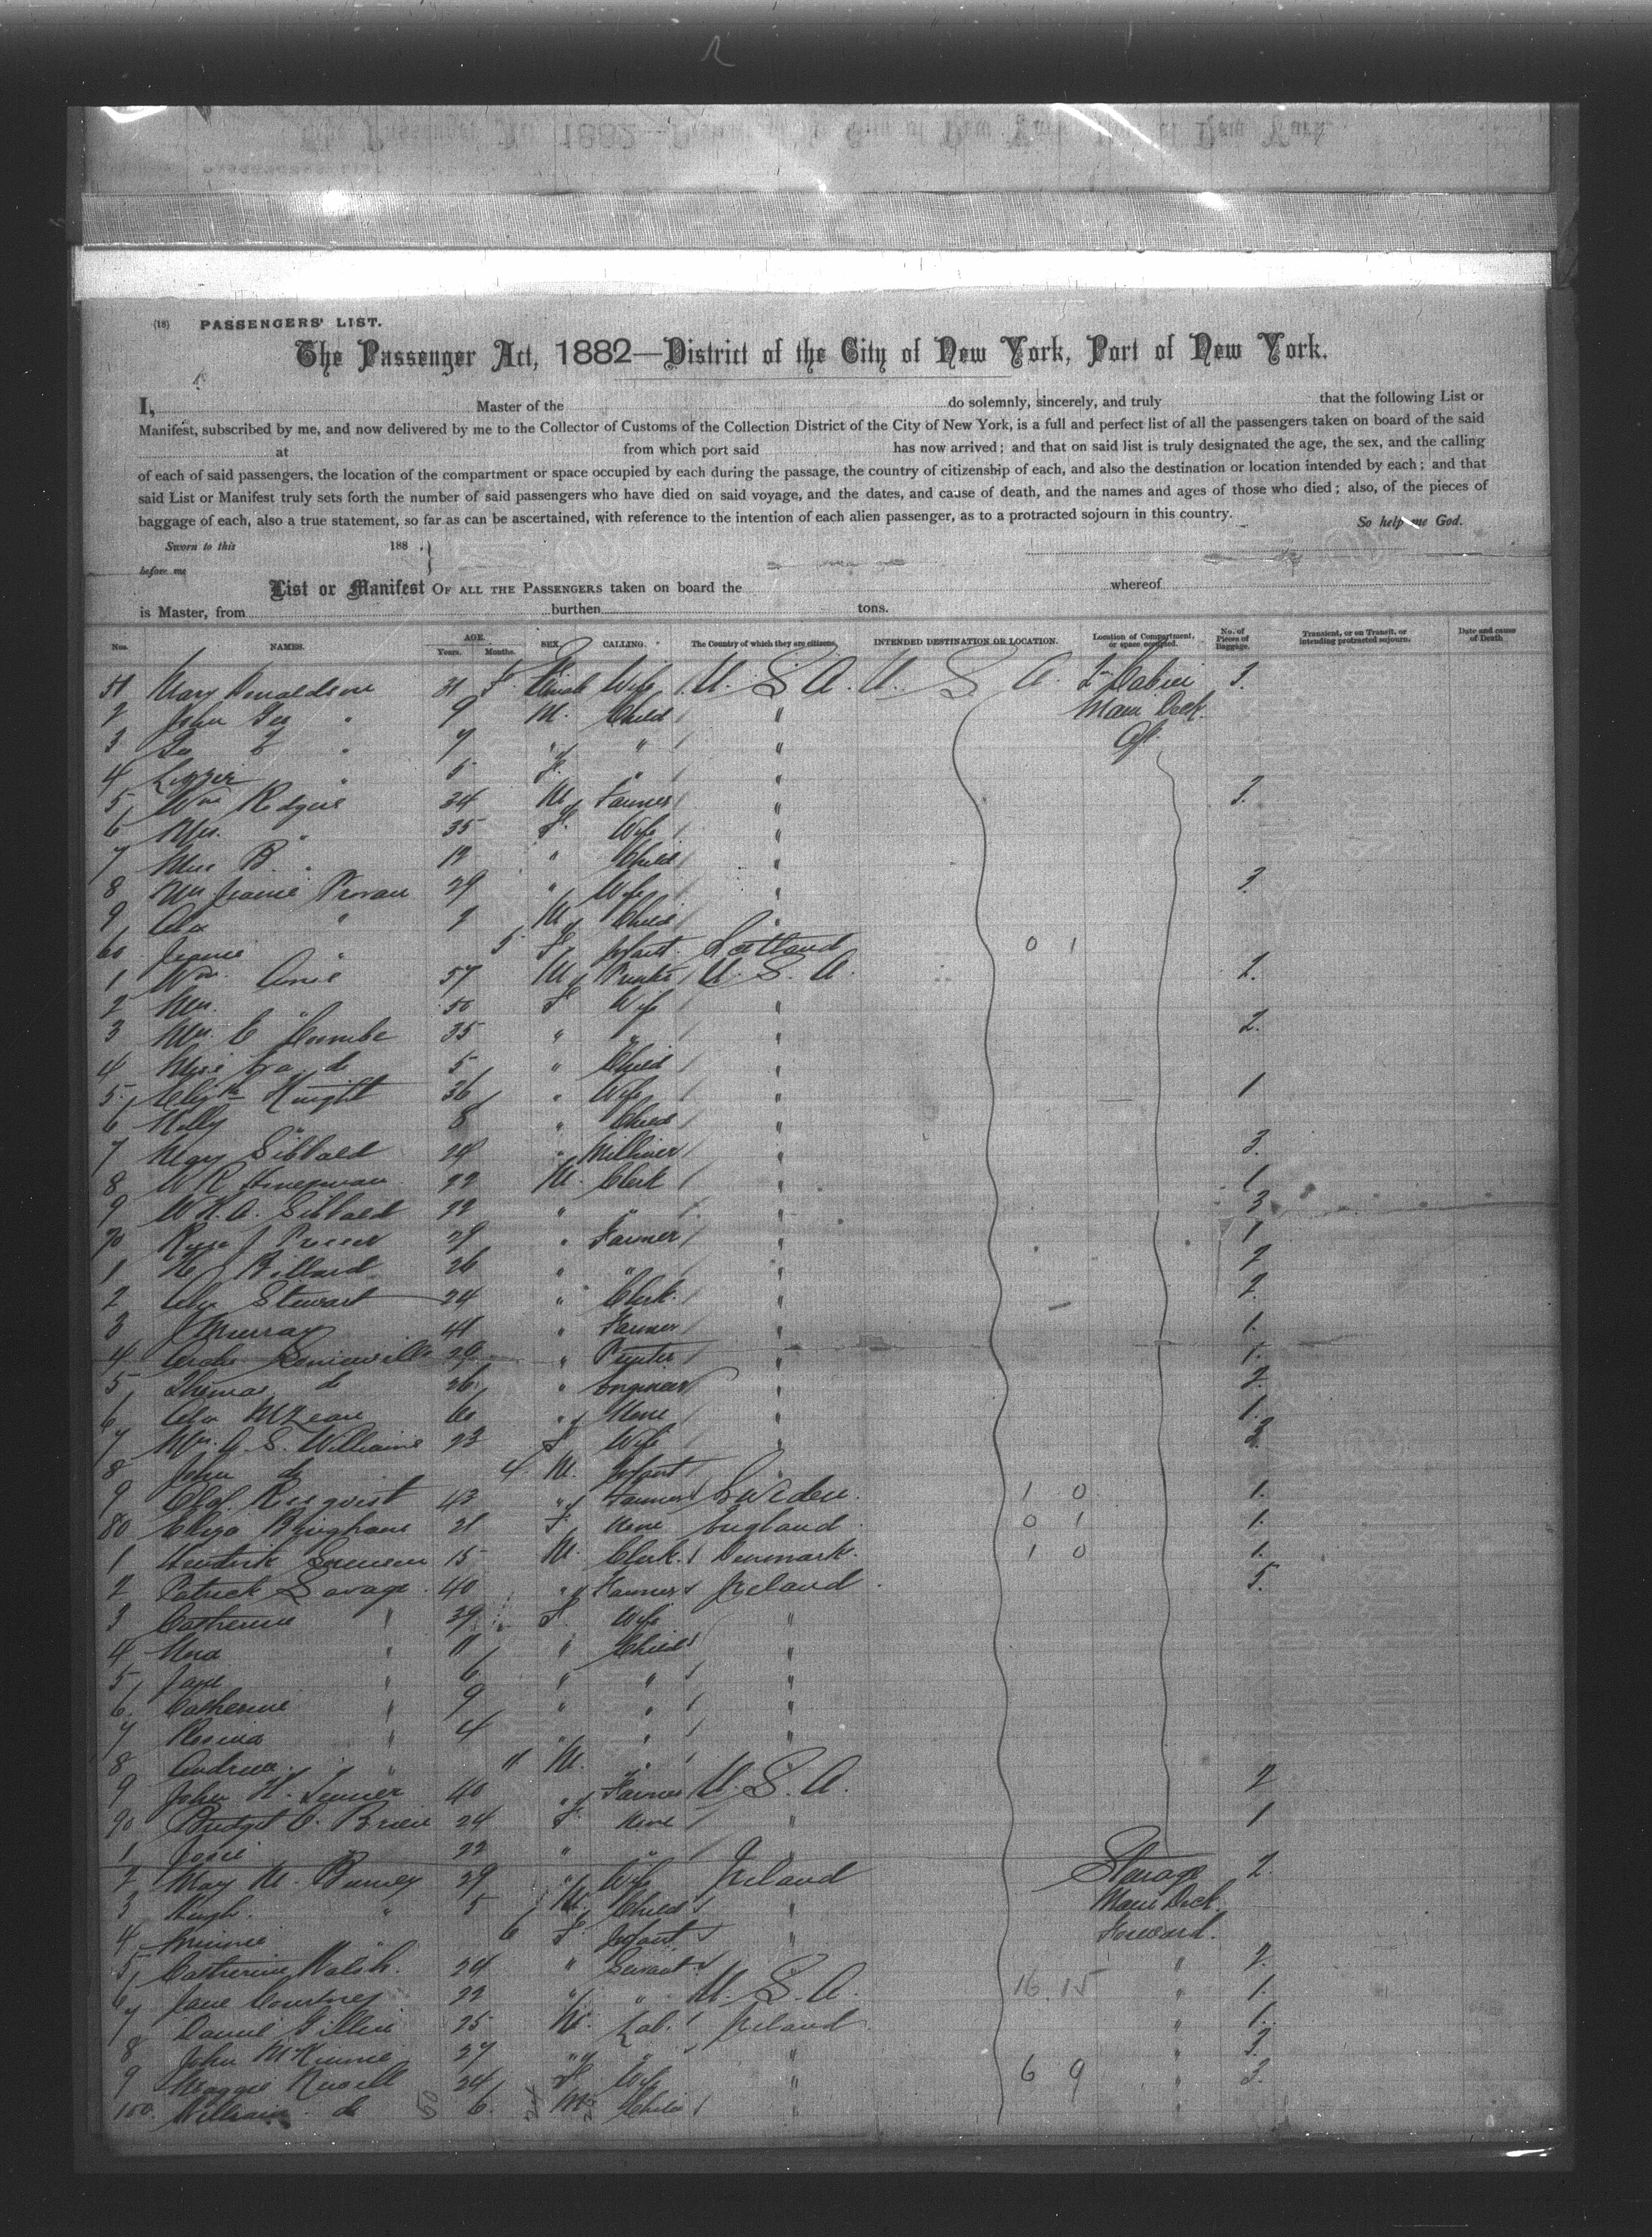 (18) PASSENGERS' LIST.
The Passenger Act, 1882—District of the City of New York, Port of New York.
I, Master of the do solemnly, sincerely, and truly that the following List or
Manifest, subscribed by me, and now delivered by me to the Collector of Customs of the Collection District of the City of New York, is a full and perfect list of all the passengers taken on board of the said
at from which port said has now arrived; and that on said list is truly designated the age, the sex, and the calling
of each of said passengers, the location of the compartment or space occupied by each during the passage, the country of citizenship of each, and also the destination or location intended by each; and that
said List or Manifest truly sets forth the number of said passengers who have died on said voyage, and the dates, and cause of death, and the names and ages of those who died; also, of the pieces of
baggage of each, also a true statement, so far as can be ascertained, with reference to the intention of each alien passenger, as to a protracted sojourn in this country. So help me God.
Sworn to this 188 .
before me
List or Manifest OF ALL THE PASSENGERS taken on board the whereof
is Master, from burthen tons.
Nos. NAMES. AGE. Years. Months. SEX. CALLING. The Country of which they are citizens. INTENDED DESTINATION OR LOCATION. Location of Compartment, or space occupied. No. of Pieces of Baggage. Transient, or on Transit, or intending protracted sojourn. Date and cause of Death
51 Mary Donaldson 31 Wife U.S.A. U S A. 2nd Cabin 3.
2 John Geo " 9 M. Child " Main Deck
3 Geo " 7 " " " Aft.
4 Lizzie " 5 F. " "
5 Wm 34 M Farmer " 3.
6 Mrs. " 35 F. Wife "
7 Miss B. " 12 " Child "
8 Mrs Jeanie Provan 29 " Wife " 3.
9 Alex " 2 M Child "
60 Jeanie " 5 F Infant Scotland 0 1
1 Wm. 57 M U.S.A. 2.
2 Mrs. " 50 F Wife "
3 Mrs. E 35 " " " 2.
4 Miss do 5 " Child "
5 Knight 36 " Wife " 1
6 " 8 " Child "
7 Sibbald 24 " Milliner " 3.
8 W R 22 M. Clerk " 1
9 W.H.A. Sibbald 22 " " " 3
70 29 " Farmer " 1
1 Billard 26 " " " 2
2 Alex Stewart 24 " Clerk " 2.
3 J Murray 41 " Farmer " 1.
4 Somerville 29 " Printer " 1.
5 Thomas do 26 " Engineer " 2.
6 Alex McLean 60 " None " 1.
7 Mrs. A. S. Williams 23 F Wife " 3.
8 John do 4 M. Infant "
9 Olof 43 " Farmer Sweden. 1 0 1.
80 Eliza Bingham 21 F. None England. 0 1 1.
1 Hendrik Sorensen 15 M. Clerk. Denmark. 1 0 1.
2 Patrick Savage 40 " Farmer Ireland 5.
3 Catherine " 39 F. Wife "
4 Nora " 11 " Child "
5 Jane " 6 " " "
6. Catherine " 9 " " "
7 Rosina " 4 " " "
8 Andrew " 11 M. " "
9 John H. 40 " Farmer U.S.A. 2
90 Bridget O. Brien 24 F. None " 1
1 Josie " 22 " " "
2 Mary M. Burney 29 " Wife Ireland Steerage 2.
3 Hugh. " 5 M. Child " Main Deck
4 Minnie " 6 F. Infant " Forward.
5 Catherine Walsh. 24 " Servant " " 2.
6 Jane Courtney 22 " " U.S.A. 16 15 " 1.
7 Daniel 25 M. Lab. Ireland " 1.
8 John McKinnie 27 " " " " 3.
9 Maggie 24 F. Wife " 6 9 " 3.
100. William do 6. M Child "